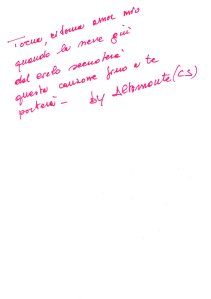 Torna, ritorna amor mio
quando la neve qui
dal cielo scenderà
questa canzone fino a te
porterà - by Altomonte (CS)